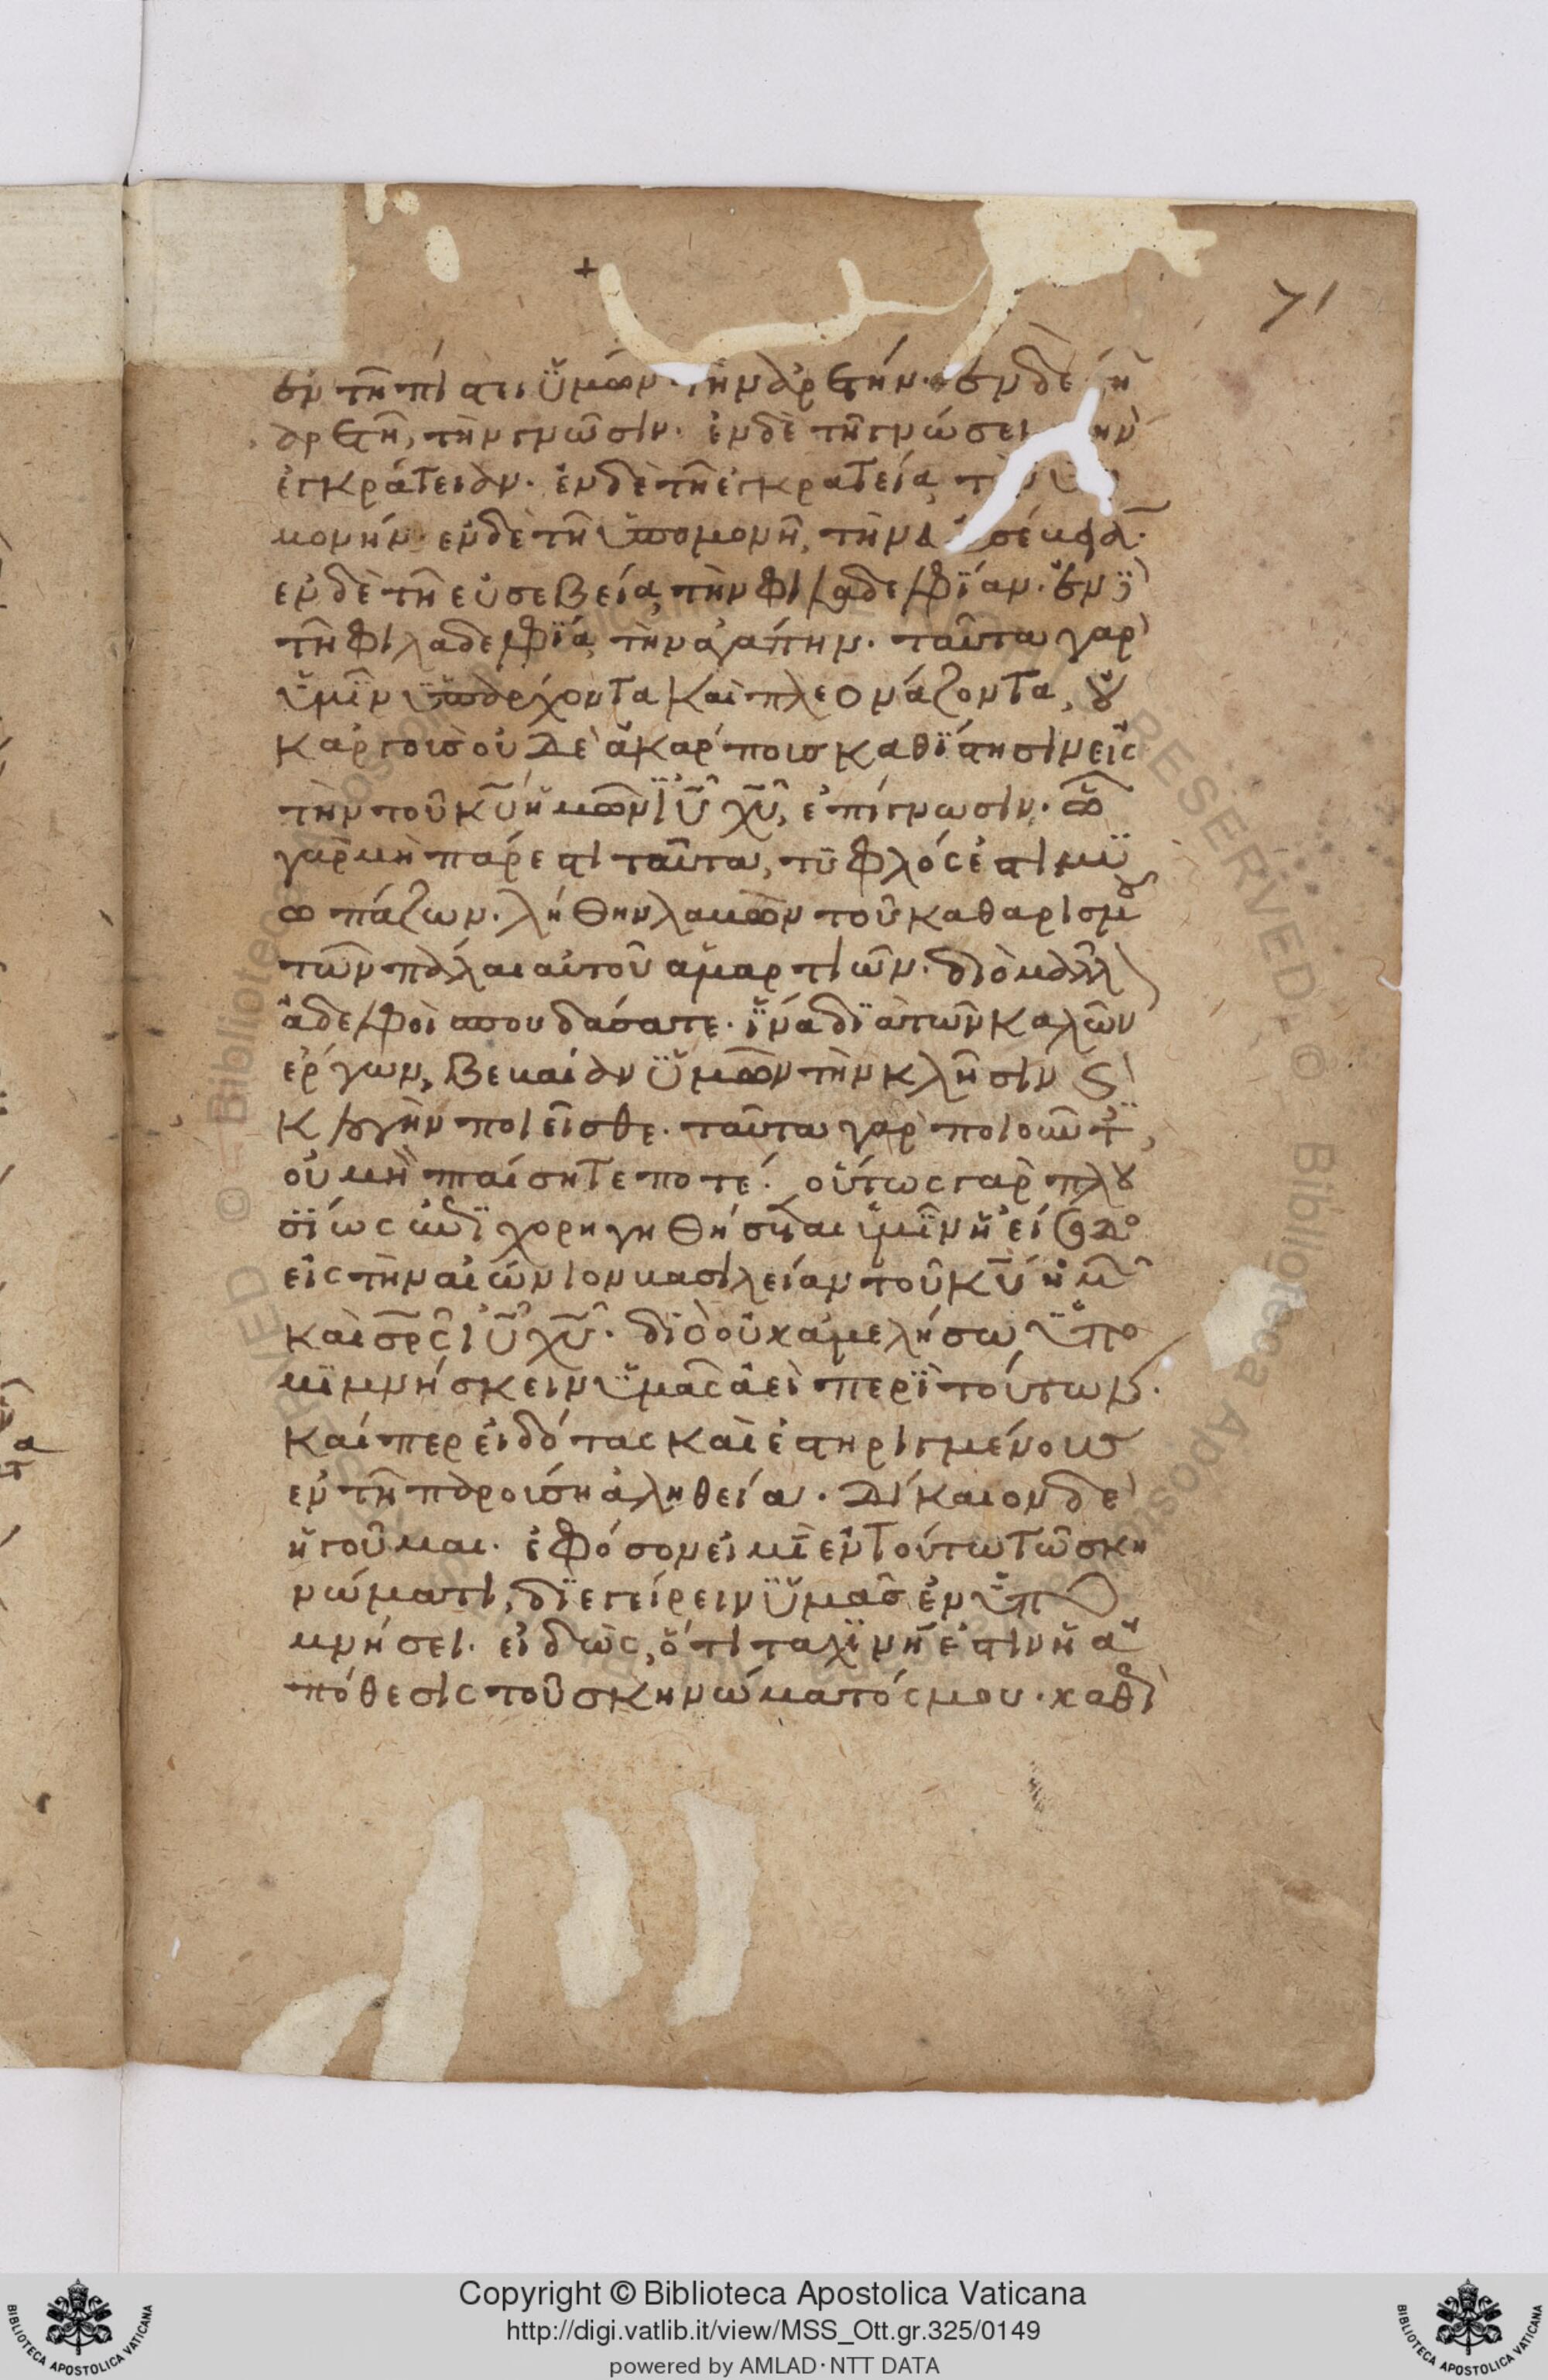 +
71
ἐν τῇ πίστει ὑμῶν τὴν ἀρετήν· ἐν δὲ τῇ
ἀρετῇ, τὴν γνῶσιν· ἐν δὲ τῇ γνώσει τὴν
ἐγκράτειαν· ἐν δὲ τῇ ἐγκρατεία τὴν
μονήν· ἐν δὲ τῇ ὑπομονῇ, τὴν σέβϊαν·
ἐν δὲ τῇ εὐσεβεία, τὴν φιλαδελφΐαν· ἐν δὲ
τῇ φιλαδελφΐα, τὴν ἀγάπην· ταῦτα γὰρ
ὑμῖν ὑπάρχοντα καὶ πλεονάζοντα, οὐ
κἀργοισ οὐδὲ ἀκάρποισ καθΐστησιν εἰς
τὴν τοῦ κυ ἡμῶν ιυ χυ, ἐπίγνωσιν· ὧ
γὰρ μὴ πάρεστι ταῦτα, τυφλός ἐστι μυ
ωπάζων· λήθην λαβὼν τοῦ καθαρισμοῦ
τῶν πάλαι αὐτοῦ ἁμαρτιῶν· διὸ μᾶλλ
ἀδελφοὶ σπουδάσατε· ἵνα δϊὰ τῶν καλῶν
ἔργων, βεβαίαν ὑμῶν τὴν κλῆσιν καὶ
κλογὴν ποιεῖσθε· ταῦτα γὰρ ποιοῦντ,
οὐ μὴ πταίσητε ποτέ· οὕτως γὰρ πλου
σΐως ἐπϊχορηγηθήσεται ὑμῖν ἡ εἴσοδο
εἰς τὴν αἰώνιον βασιλείαν τοῦ κυ ἡμ
καὶ σρς ιυ χυ· δϊὸ οὐκ ἀμελήσω ὑπο
μϊμνήσκειν ὑμᾶς ἀεὶ περὶ τούτων·
καίπερ εἰδότας καὶ ἐστηριγμένουσ
ἐν τῇ παρούσῃ ἀληθεία· Δίκαιον δὲ
ἡγοῦμαι· ἐφόσον εἰμὶ ἐν τούτω τῶ σκη
νώματι, δϊεγείρειν ὑμᾶσ ἐν ὑπο
μνήσει· εἰδὼς, ὅτι ταχϊνή ἐστιν ἡ ἀ
πόθεσις τοῦ σκηνώματός μου· καθὼ
Copyright © Biblioteca Apostolica Vaticana
http://digi.vatlib.it/view/MSS_Ott.gr.325/0149
powered by AMLAD·NTT DATA